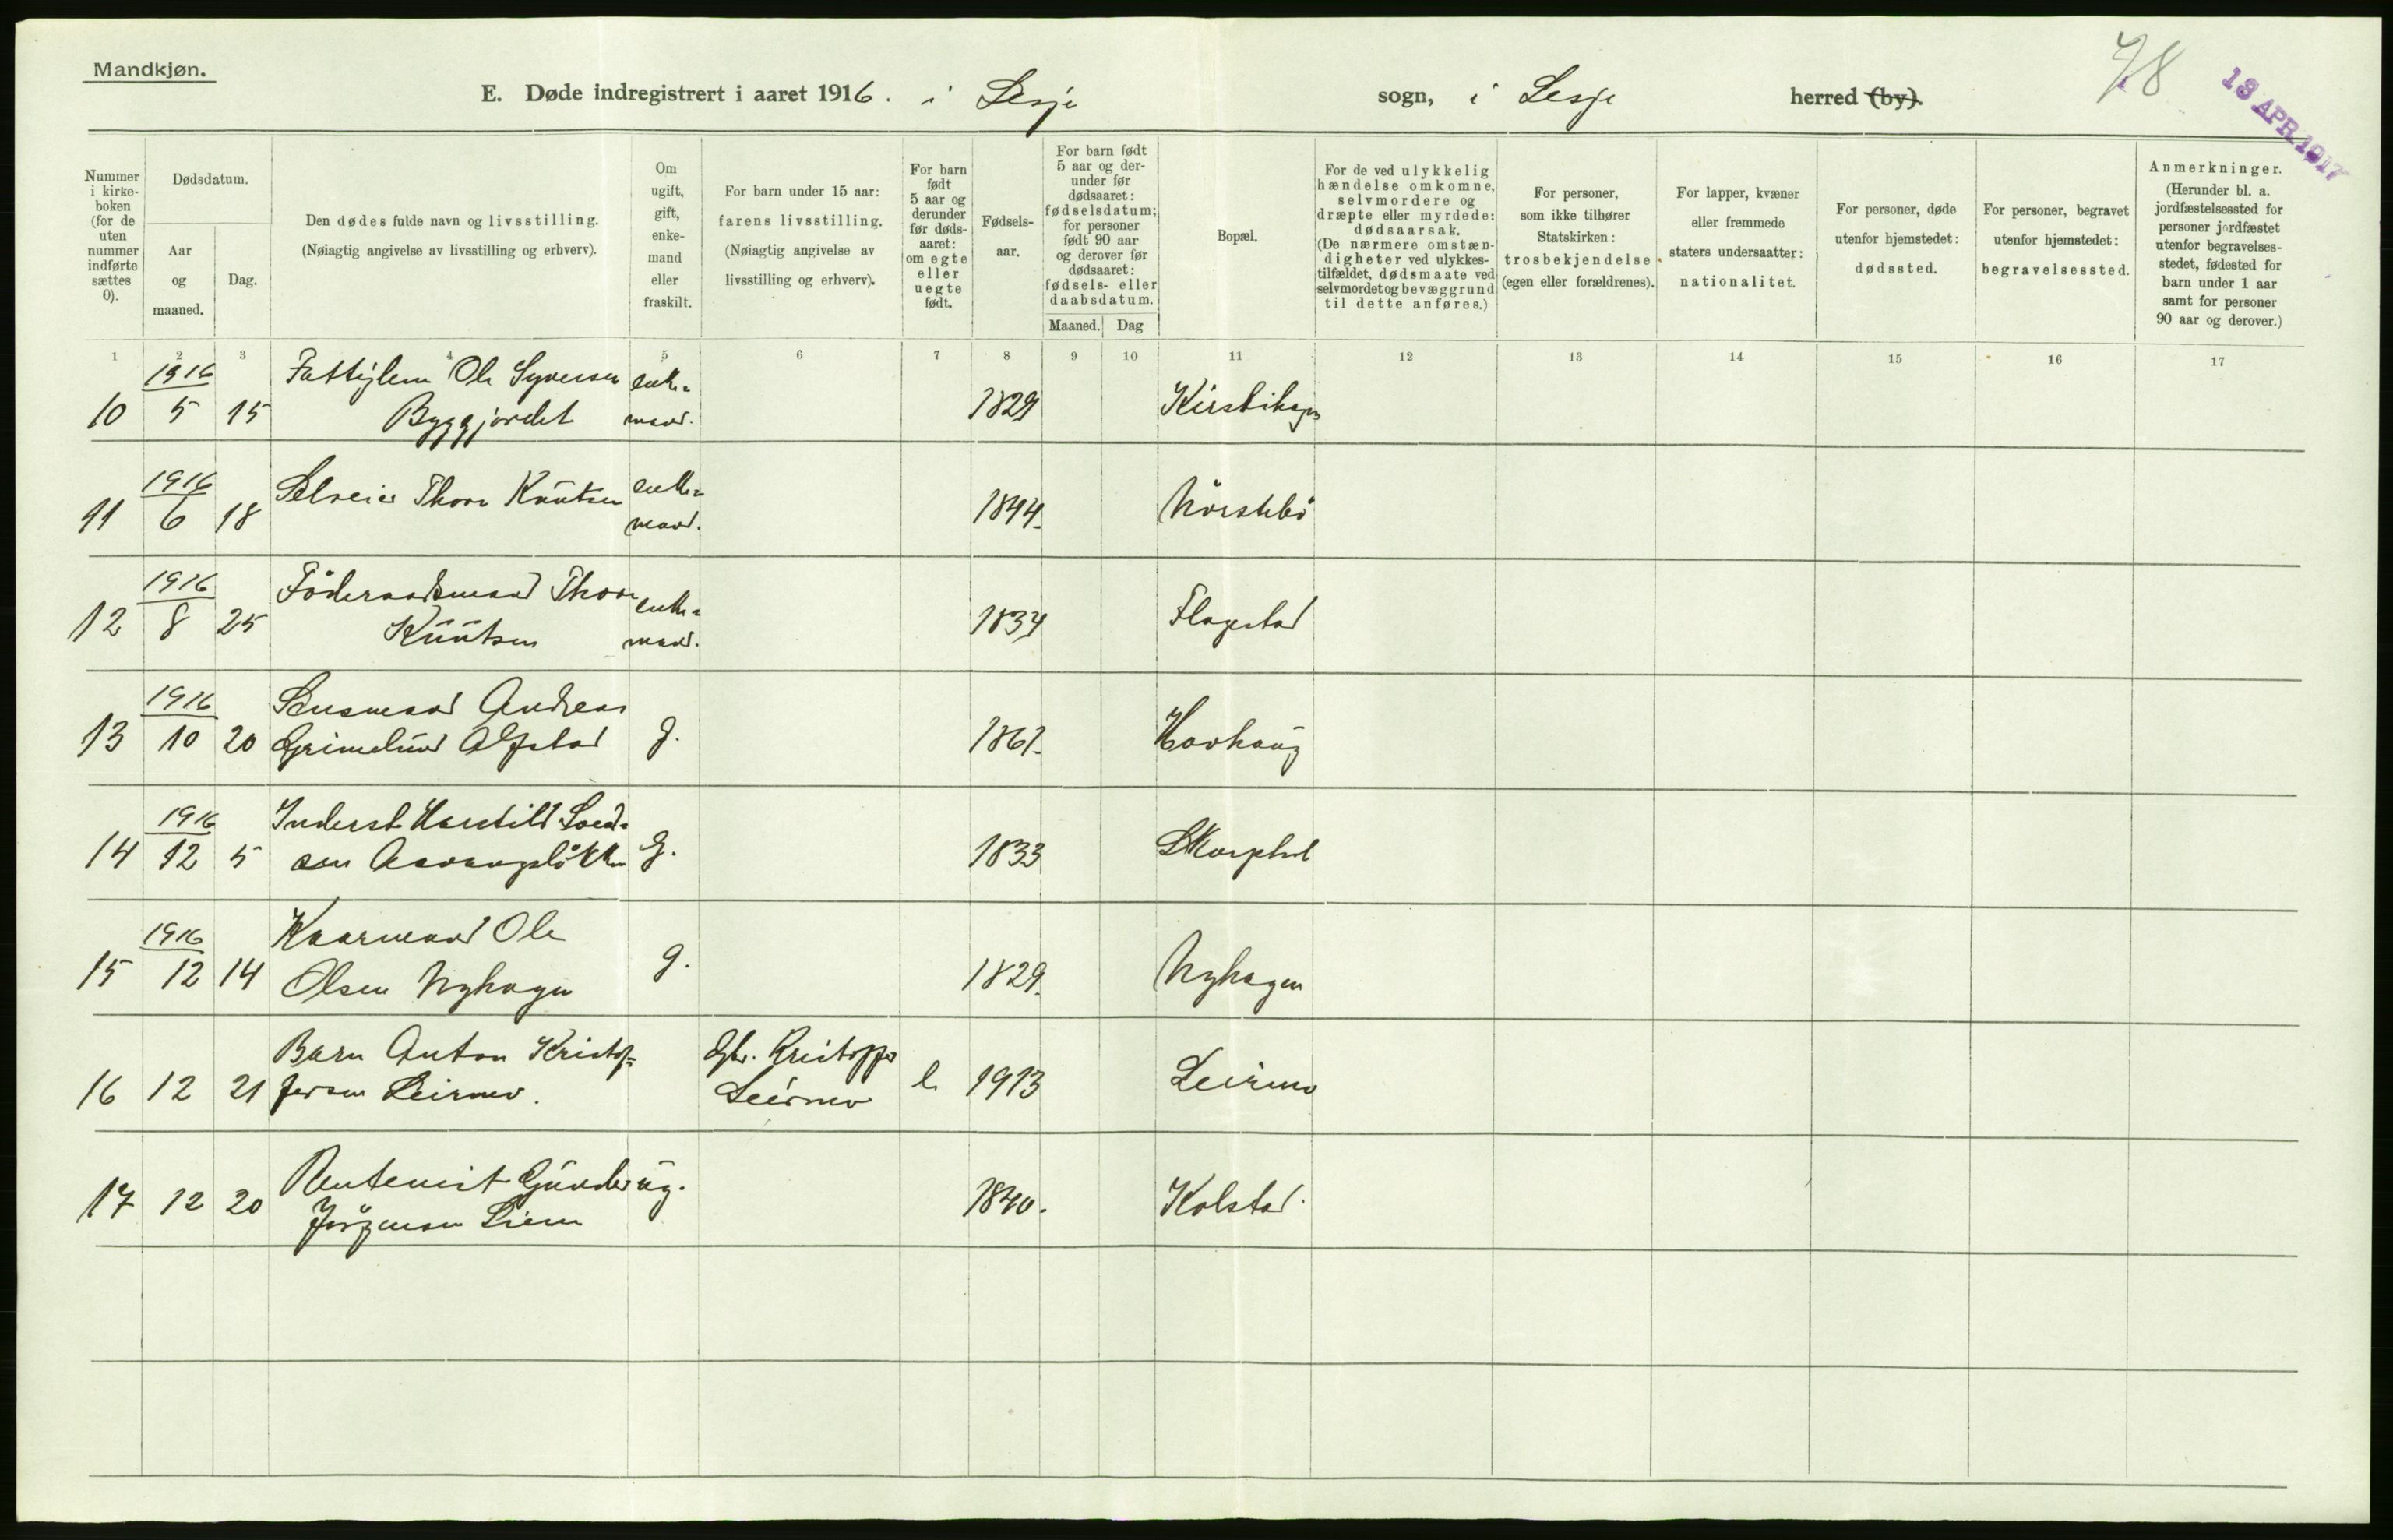 Mandkjøn.
78
13 APR. 1917
E. Døde indregistrert i aaret 1916. i Lesje sogn, i Lesje herred (by).
Nummer i kirkeboken (for de uten nummer indførte sættes 0).
Dødsdatum.
Aar og maaned.
Dag.
Den dødes fulde navn og livsstilling.
(Nøiagtig angivelse av livsstilling og erhverv).
Om ugift, gift, enkemand eller fraskilt.
For barn under 15 aar: farens livsstilling.
(Nøiagtig angivelse av livsstilling og erhverv).
For barn født 5 aar og derunder før dødsaaret: om egte eller uegte født.
Fødselsaar.
For barn født 5 aar og derunder før dødsaaret: fødselsdatum; for personer født 90 aar og derover før dødsaaret: fødsels- eller daabsdatum.
Maaned. Dag
Bopæl.
For de ved ulykkelig hændelse omkomne, selvmordere og dræpte eller myrdede: dødsaarsak.
(De nærmere omstændigheter ved ulykkestilfældet, dødsmaate ved selvmordet og bevæggrund til dette anføres.)
For personer, som ikke tilhører Statskirken: trosbekjendelse (egen eller forældrenes).
For lapper, kvæner eller fremmede staters undersaatter: nationalitet.
For personer, døde utenfor hjemstedet: dødssted.
For personer, begravet utenfor hjemstedet: begravelsessted.
Anmerkninger.
(Herunder bl. a. jordfæstelsessted for personer jordfæstet utenfor begravelsesstedet, fødested for barn under 1 aar samt for personer 90 aar og derover.)
1 2 3 4 5 6 7 8 9 10 11 12 13 14 15 16 17
1916 Fattiglem Ole Syversen enke=
10 5 15 Byggjordet mand. 1829 Kirstihagen
1916 Selveier Thore Knutsen enke=
11 6 18 mand. 1844. Nörstebö
1916 Föderaadsmand Thore enke=
12 8 25 Knutsen mand. 1834 Flagestad
1916 Lensmand Andreas
13 10 20 Grimelund Alfstad g. 1861. Hovhaug
1916 Inderst
14 12 5 g. 1833
1916 Kaarmand Ole
15 12 14 Olsen Nyhagen g. 1829. Nyhagen
Barn Anton Kristof= Gbr. Kristoffer
16 12 21 fersen Leirmo. Leirmo e 1913 Leirmo
Rentenist Gunder ug.
17 12 20 Jörgensen 1840. Kolstad